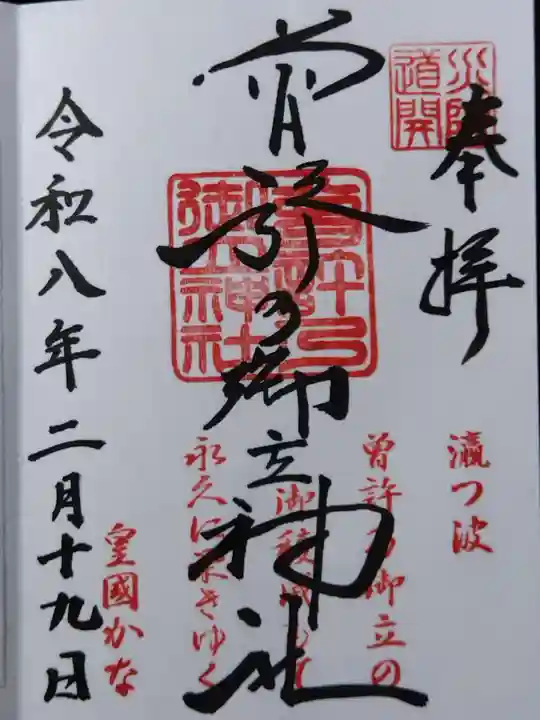 奉拝
災除
道開
曽許乃御立神社
曽許乃
御立神社
瀛つ波
曽許乃御立の
御稜威もて
永久に栄きゆく
皇國かな
令和八年二月十九日